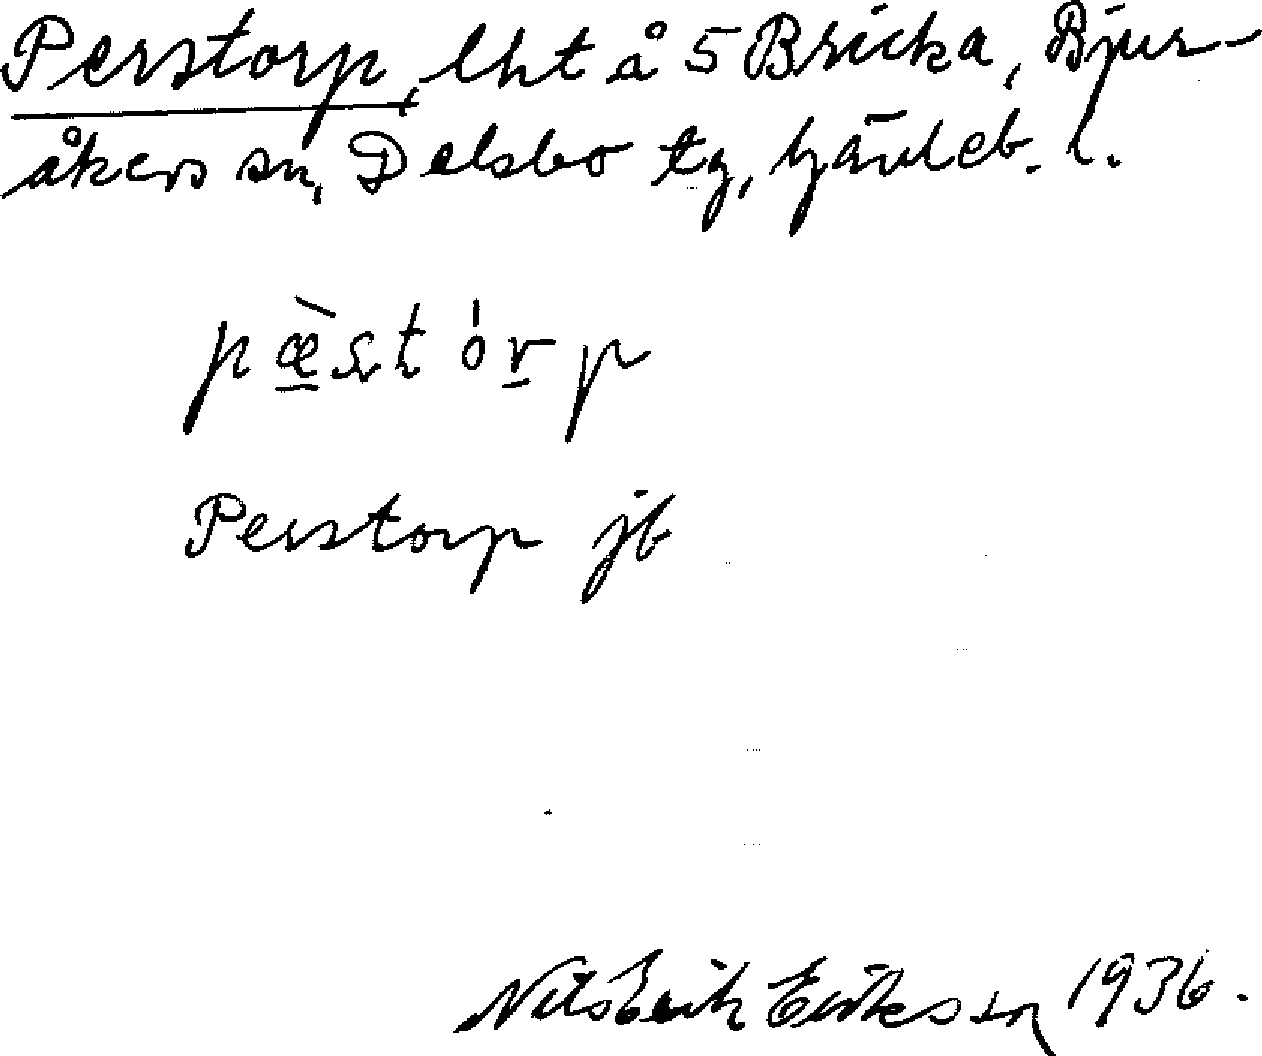 Perstorp, lht å 5 Bricka, Bjur-
åkers sn, Delsbo tg, Gävleb. l.
pæ̀stórp
Perstorp jb
Nils Erik Eriksson 1936.